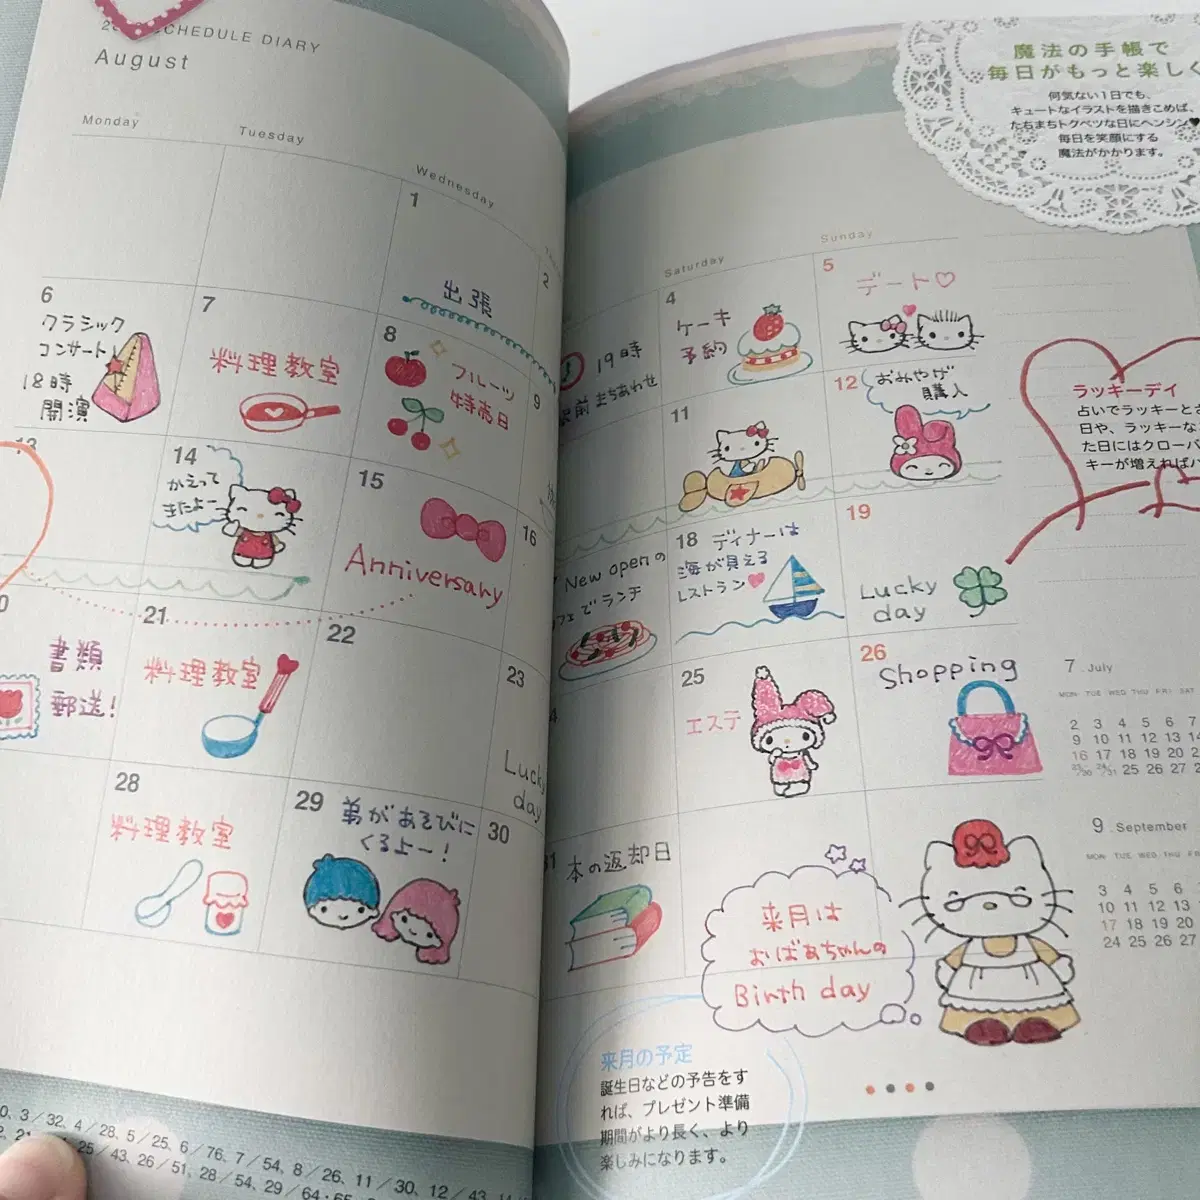 SCHEDULE DIARY
August
Monday
Tuesday
Wednesday
1
出張
2
6
クラシック
コンサート
18時
開演
7
料理教室
8
フルーツ
特売日
9
13
14
かえって
きたよー
15
Anniversary
16
21
料理教室
書類
郵送!
22
23
Lucky
day
28
料理教室
29
弟があそびに
くるよー!
30
0、3／32、4／28、5／25、6／76、7／54、8／26、11／30、12／43、
25／43、26／51、28／54、29／64・65
魔法の手帳で
毎日がもっと楽しく
何気ない1日でも、
キュートなイラストを描きこめば、
たちまちトクベツな日にヘンシン♥
毎日を笑顔にする
魔法がかかります。
Saturday
Sunday
19時
駅前まちあわせ
4
ケーキ
予約
5
デート♡
11
12
おみやげ
購入
ラッキーデイ
占いでラッキーとさ
日や、ラッキーな
た日にはクローバ
キーが増えればハ
New openの
カフェでランチ
18
ディナーは
海が見える
レストラン♥
19
Lucky
day
25
エステ
26
Shopping
31
本の返却日
来月は
おばあちゃんの
Birth day
7 . July
MON TUE WED THU FRI SAT
2 3 4 5 6 7
9 10 11 12 13 14
16 17 18 19 20 2
23/30 24/31 25 26 27
9 . September
MON TUE WED THU FRI
3 4 5 6
10 11 12 13
17 18 19 20
24 25 26 27
来月の予定
誕生日などの予告をす
れば、プレゼント準備
期間がより長く、より
楽しみになります。